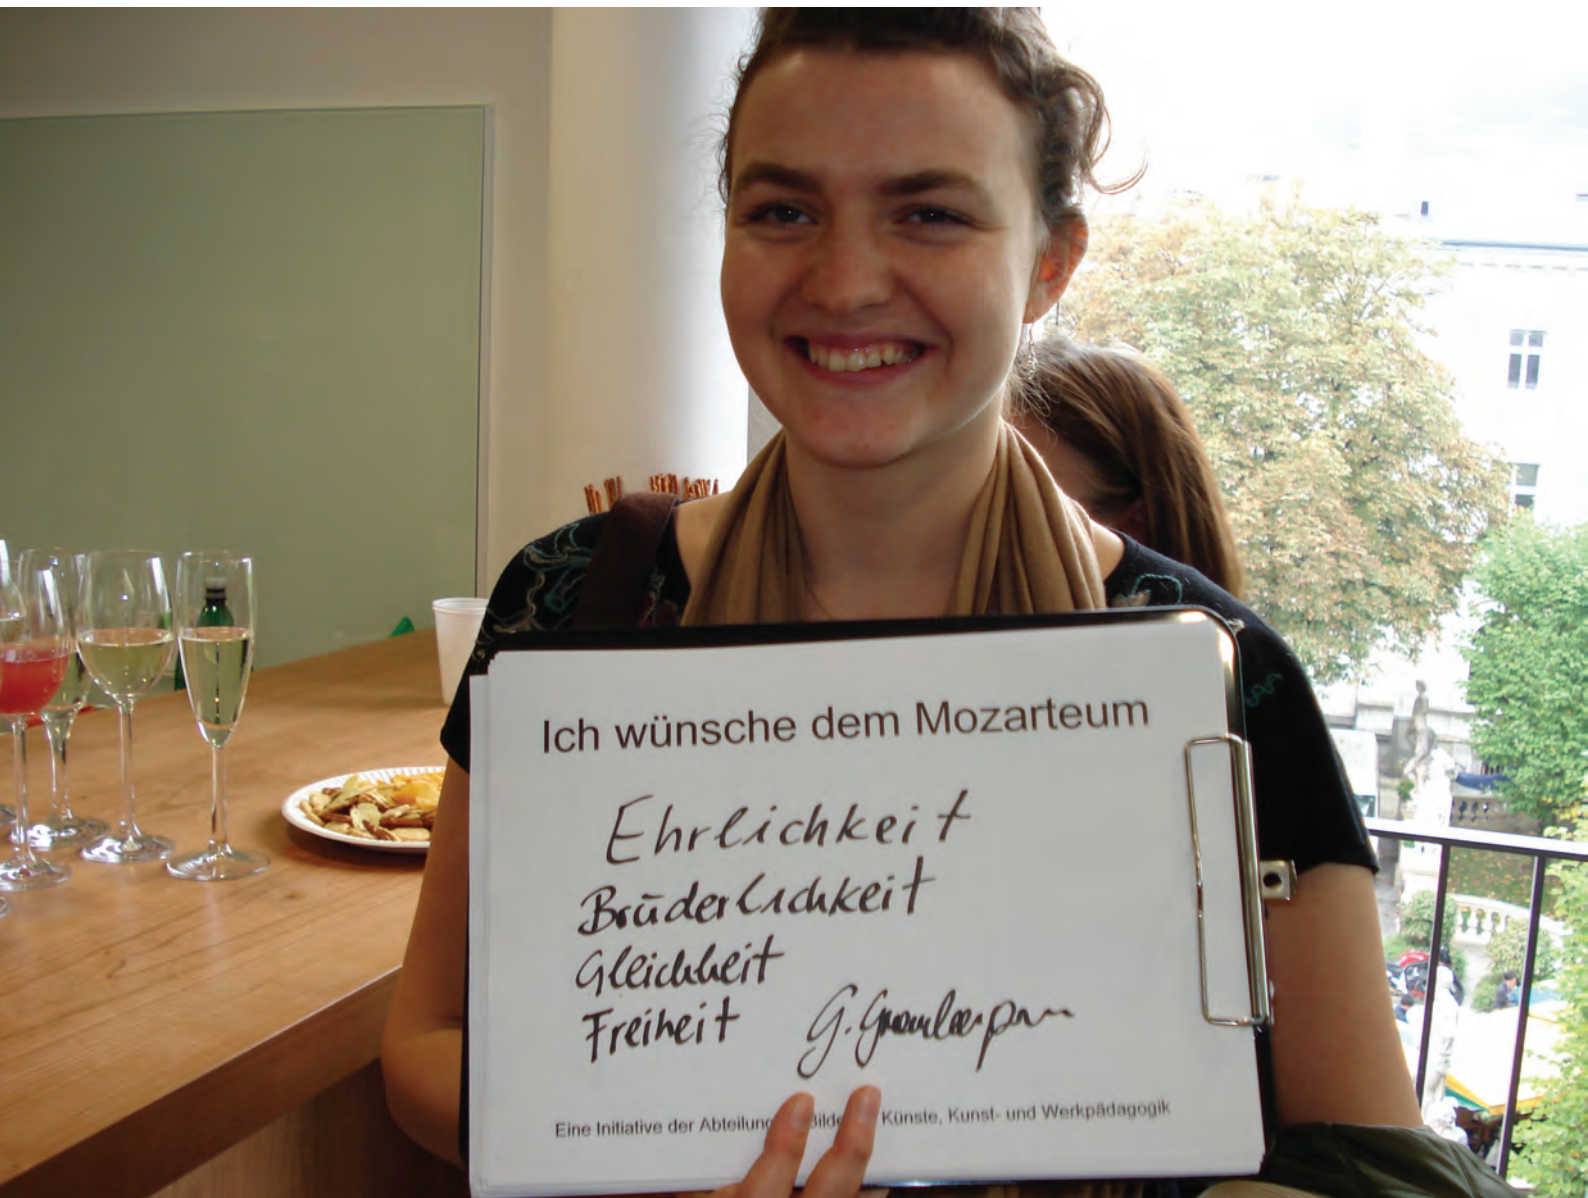 Ich wünsche dem Mozarteum
Ehrlichkeit
Brüderlichkeit
Gleichheit
Freiheit G.
Eine Initiative der Abteilung Künste, Kunst- und Werkpädagogik